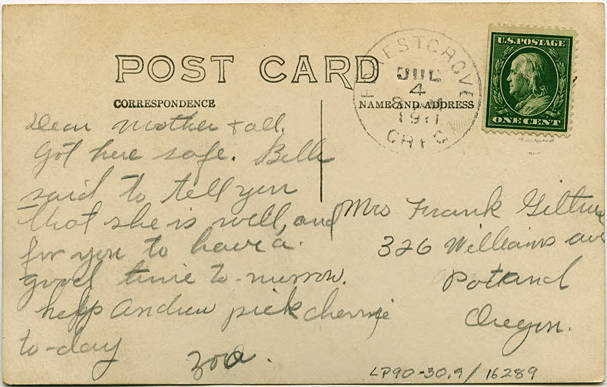 POST CARD
CORRESPONDENCE
NAME AND ADDRESS
FORESTGROVE
JUL
4
8 AM
1911
OREG
U.S. POSTAGE
ONE CENT
Dear Mother + all,
Got here safe. Belle
said to tell you
that she is well, and
for you to have a
good time to-morrow.
help Andrew pick cherrie
to-day
Zoa.
Mrs Frank Giltner
326 Williams ave
Potland
Oregon.
LP90-30.9/16289